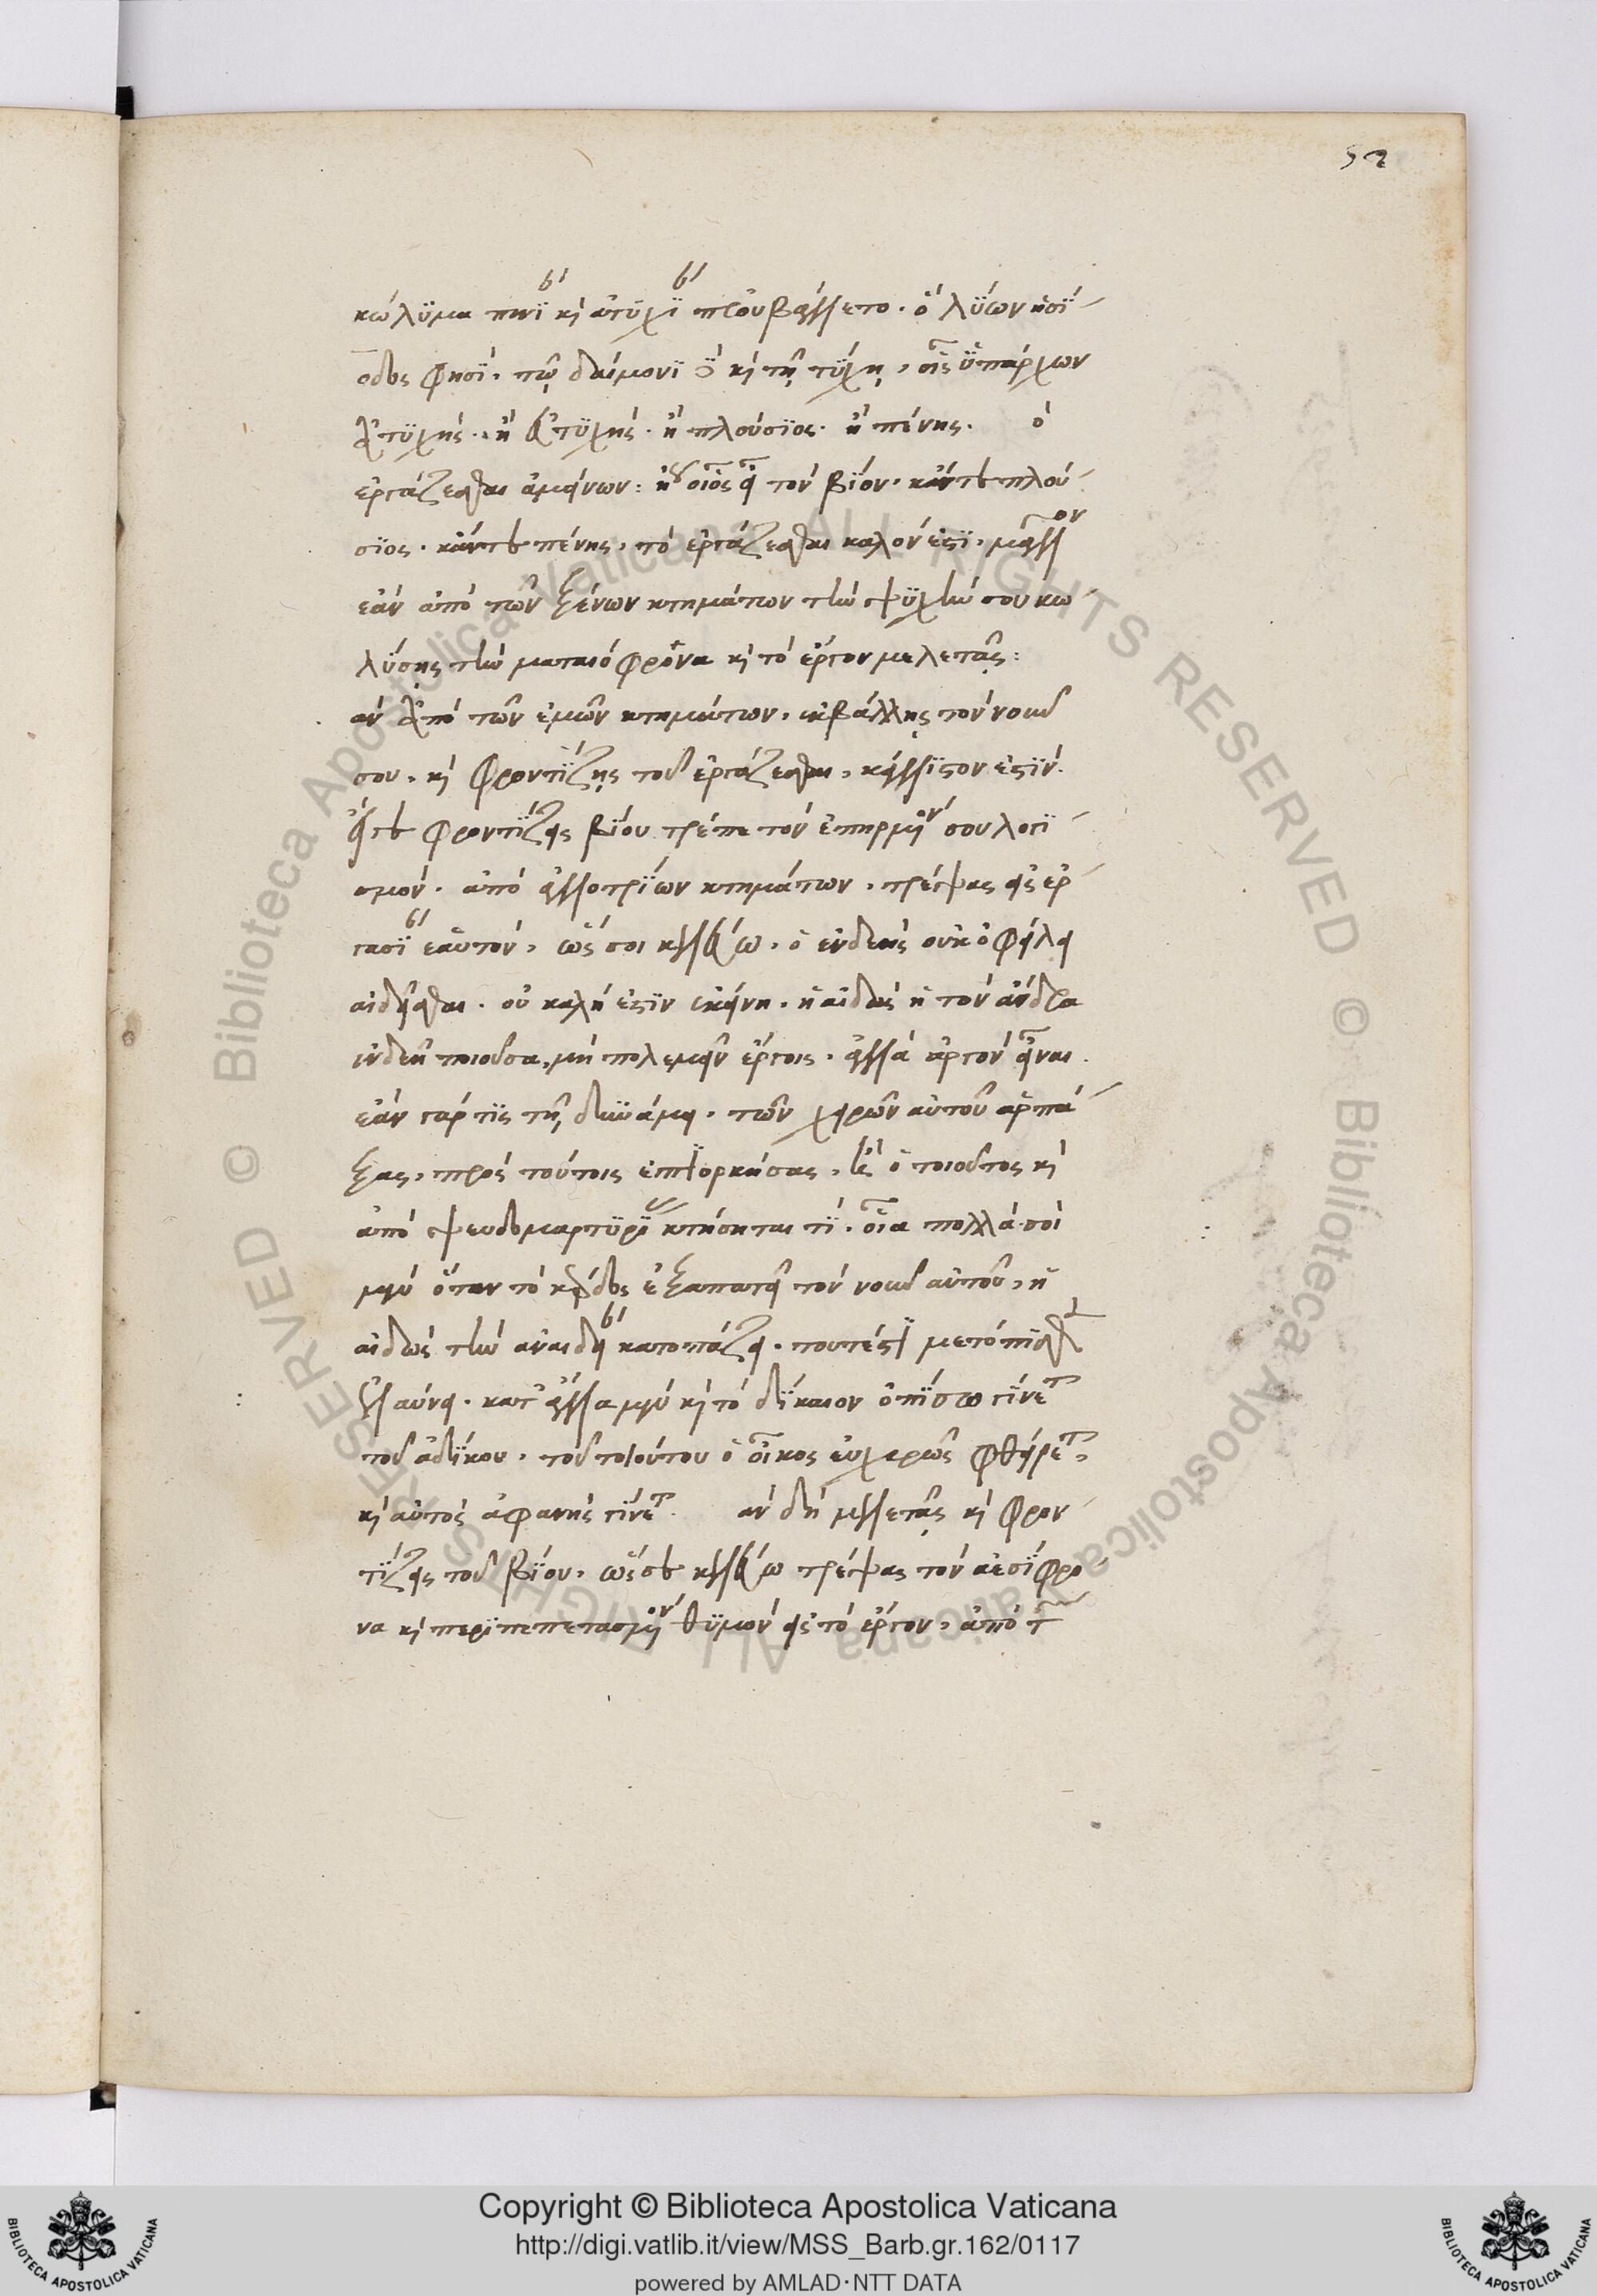 52
κώλϋμα πενΐαν κὶ ἀτυχΐαν προυβάλλετο. ὃ λϋων ἡσΐ
οδος φησΐ. τῷ δαίμονϊ ὃ κὶ τῇ τϋχῃ, οἷς ϋπάρχων
εὐτϋχής. ἢ ἀτϋχής. ἢ πλούσϊος. ἢ πένης. ὁ
ἐργάζεσθαι ἀμείνων: ἤγουν οἷος εἶ τὸν βίον. κἄντε πλού
σϊος. κἄντε πένης, τὸ ἐργάζεσθαι καλόν ἐστϊ, μᾶλλον
ἐὰν ἀπὸ τῶν ξένων κτημάτων τὴν ψϋχήν σου κω
λϋσῃς τὴν ματαιόφρονα κὶ τὸ ἔργον μελετᾷς:
ἂν ἀπὸ τῶν ἐμῶν κτημάτων, ἐκβάλλῃς τὸν νοῦν
σου, κὶ φροντΐζῃς τοῦ ἐργάζεσθαι, κάλλϊστον ἐστΐν.
εἴτε φροντΐζεις βΐου τρέπε τὸν ἐπηρμένον σου λογϊ
σμόν. ἀπὸ ἀλλοτρΐων κτημάτων, τρέψας εἰς ἐρ
γασΐαν ἑαυτόν, ὥς σοι κελεύω. ὁ ἐνδεὴς οὐκ ὀφείλει
αἰδεῖσθαι. οὐ καλή ἐστϊν ἐκείνη. ἡ αἰδὼς ἡ τὸν ἄνδρα
ἐνδεῆ ποιοῦσα, μὴ πολεμεῖν ἔργοις. ἀλλὰ ἀργὸν εἶναι.
ἐὰν γάρ τϊς τῇ δυνάμει. τῶν χειρῶν αὐτοῦ ἁρπά
ξας, πρὸς τούτοις ἐπϊορκήσας, ὁ τοιοῦτος κὶ
ἀπὸ ψευδομαρτϋρΐας κτήσηται τΐ. οἷα πολλά σοι
μὲν ὅταν τὸ κέρδος ἐξαπατᾷ τὸν νοῦν αὐτοῦ, ἡ
αἰδὼς τὴν ἀναίδειαν κατοπάζει. τουτέστϊ μετόπϊσθεν
ἐλαύνει. κατ' ἄλλα μὲν κὶ τὸ δΐκαιον ὀπΐσω γΐνεται
τοῦ ἀδΐκου. τοῦ τοιούτου ὁ οἶκος εὐχερῶς φθείρεται,
κὶ αὐτὸς ἀφανὴς γΐνεται. ἂν δὴ μελετᾷς κὶ φρον
τΐζεις τοῦ βΐου. ὥς σε κελεύω τρέψας τὸν ἀεσΐφρο
να κὶ περϊπεπετασμένον θϋμὸν εἰς τὸ ἔργον, ἀπὸ τῶν
Copyright © Biblioteca Apostolica Vaticana
http://digi.vatlib.it/view/MSS_Barb.gr.162/0117
powered by AMLAD·NTT DATA